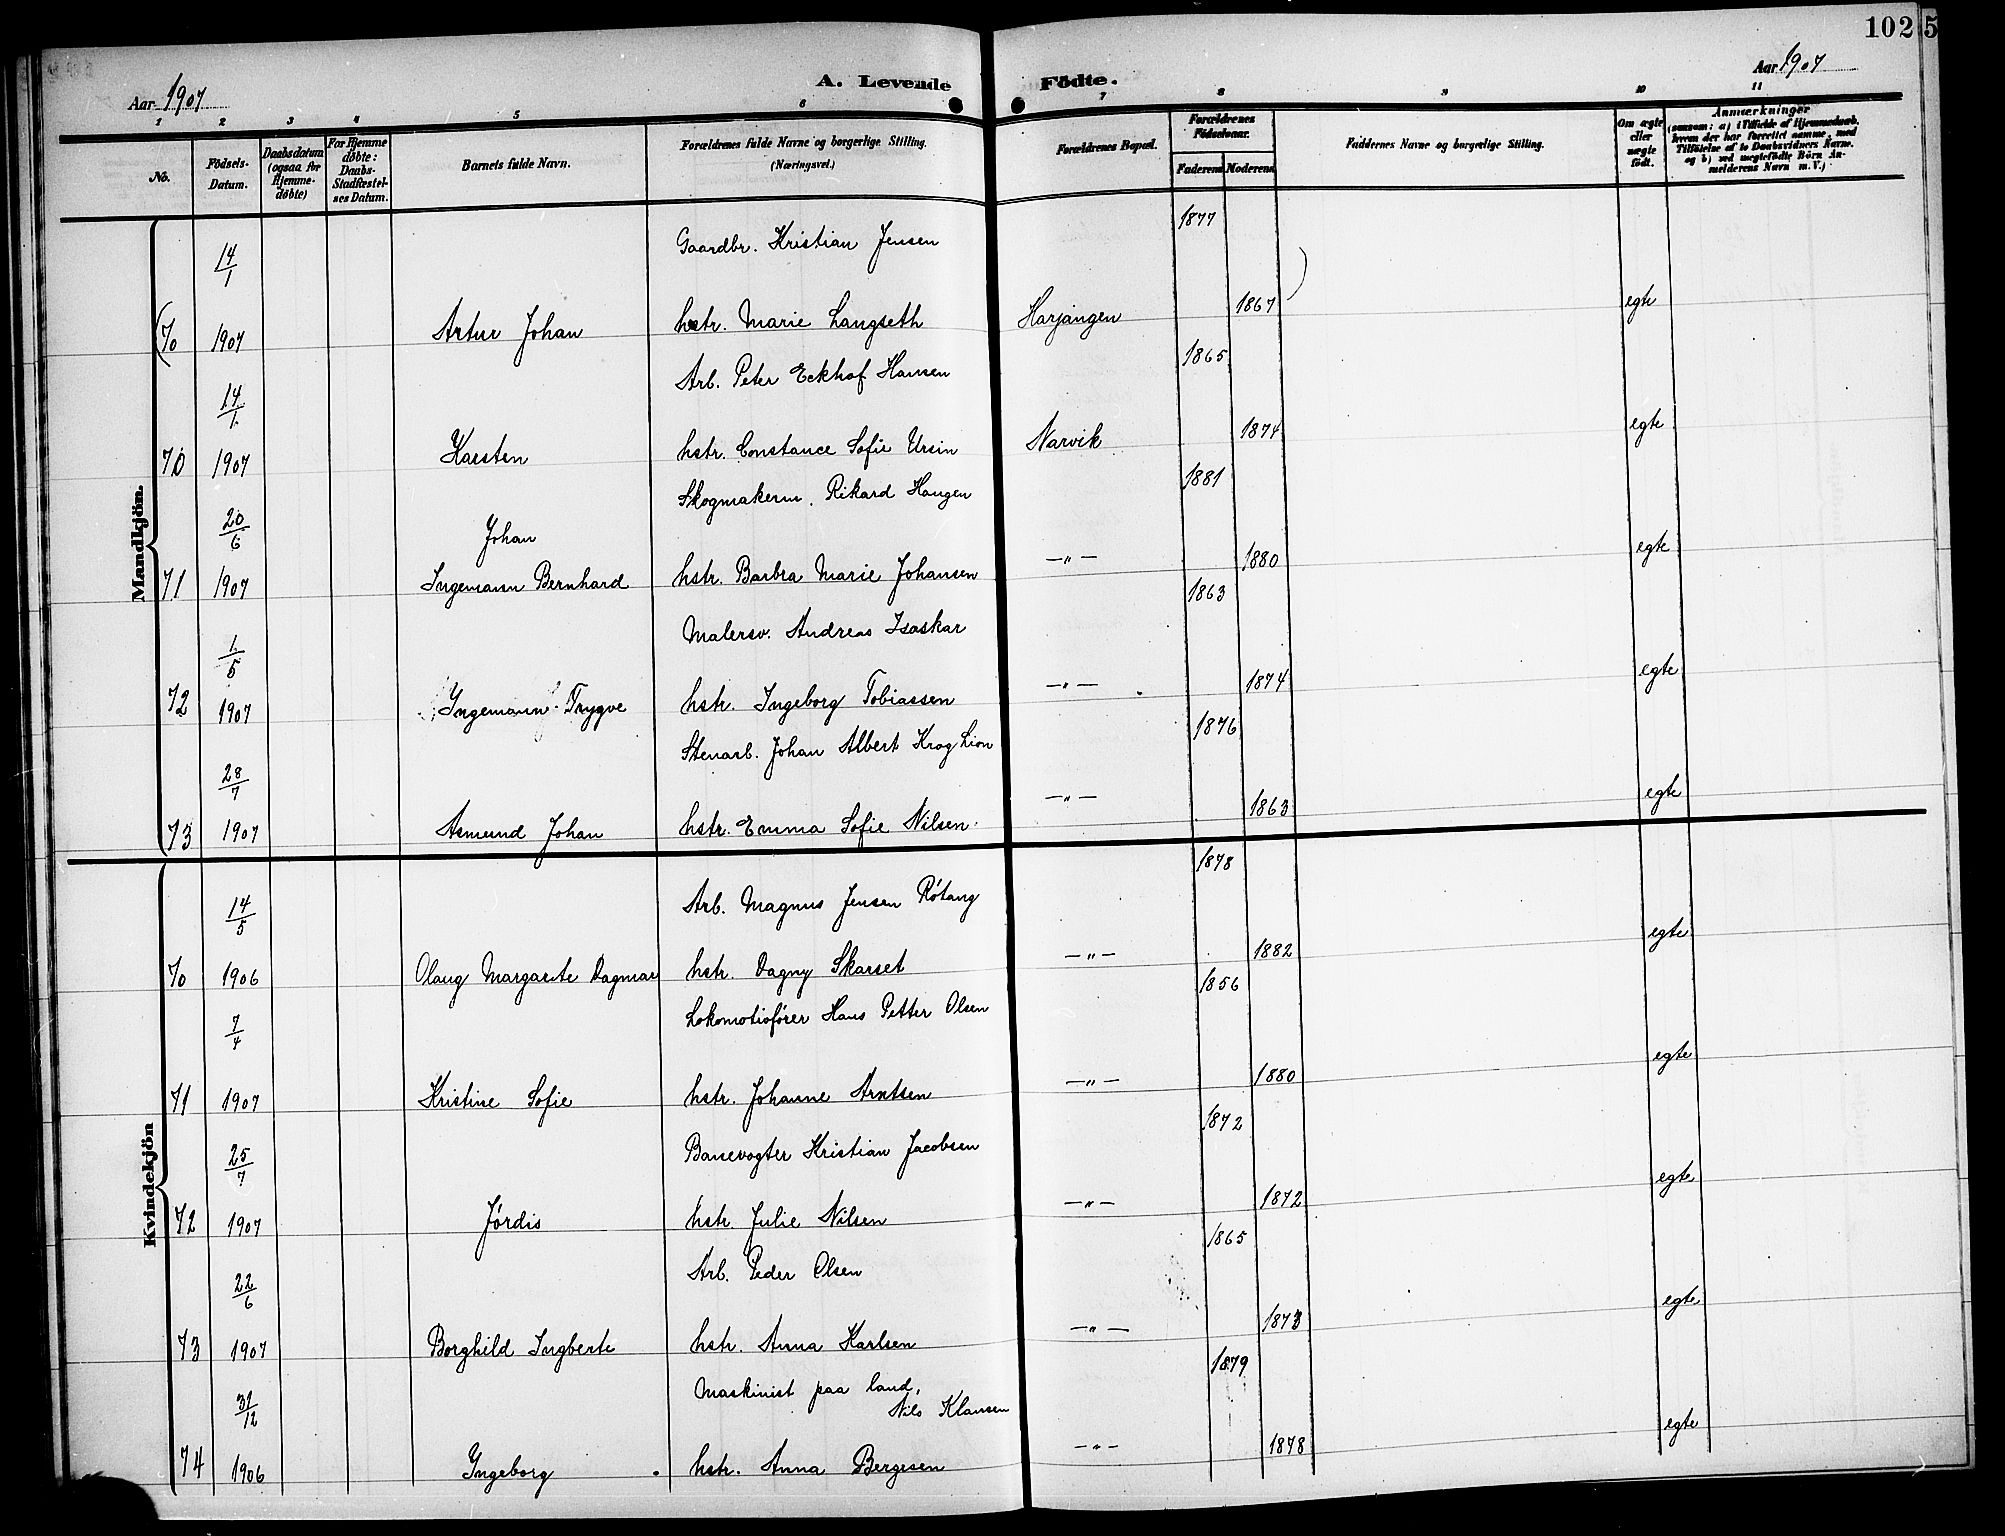 102 5
Aar 1907
A. Levende Födte.
Aar 1907
1 2 3 4 5 6 7 8 9 10 11
No.
Födsels-Datum.
Daabsdatum (ogsaa for Hjemme-døbte)
For Hjemme døbte: Daabs-Stadfæstel-ses Datum.
Barnets fulde Navn.
Forældrenes fulde Navne og borgerlige Stilling. (Næringsvei.)
Forældrenes Bopæl.
Forældrenes Födselsaar.
Faderens Moderens
Faddernes Navne og borgerlige Stilling.
Om ægte eller uægte födt.
Anmærkninger
(saasom: a) i Tilfælde af Hjemmedaab, hvem der har forrettet samme, med Tilföielse af to Daabsvidners Navne. og b) ved uægtefödte Börn An-melderens Navn m. V.)
Mandkjön.
14/1 Gaardbr. Kristian Jensen 1877
70 1907 Artur Johan hstr. Marie Langseth Harjangen 1867 egte
14/1 Arb. Peter Eckhof Hansen 1865
70 1907 Karsten hstr. Constance Sofie Ursin Narvik 1874 egte
20/6 Skogmakerm. Rikard Haugen 1881
Johan
71 1907 Ingemann Bernhard hstr. Barbra Marie Johansen —"— 1880 egte
1/5 Malersv. Andreas Isaskar 1863
72 1907 Ingemann Trygve hstr. Ingeborg Tobiassen —"— 1874 egte
28/7 Stenarb. Johan Albert Krog Lion 1876
73 1907 Asmund Johan hstr. Emma Sofie Nilsen. —"— 1863 egte
Kvindekjön
14/5 Arb. Magnus Jensen Røtang 1878
70 1906 Olaug Margarete Dagmar hstr. Dagny Skarset —"— 1882 egte
7/4 Lokomotivfører Hans Petter Olsen 1856
71 1907 Kristine Sofie hstr. Johanne Arntsen —"— 1880 egte
25/7 Banevogter Kristian Jacobsen 1872
72 1907 Jørdis hstr. Julie Nilsen —"— 1872 egte
22/6 Arb. Peder Olsen 1865
73 1907 Borghild Ingberte hstr. Anna Karlsen —"— 1873 egte
31/12 Maskinist paa land, 1879
Nils Klausen
74 1906 Ingeborg hstr. Anna Bergesen —"— 1878 egte